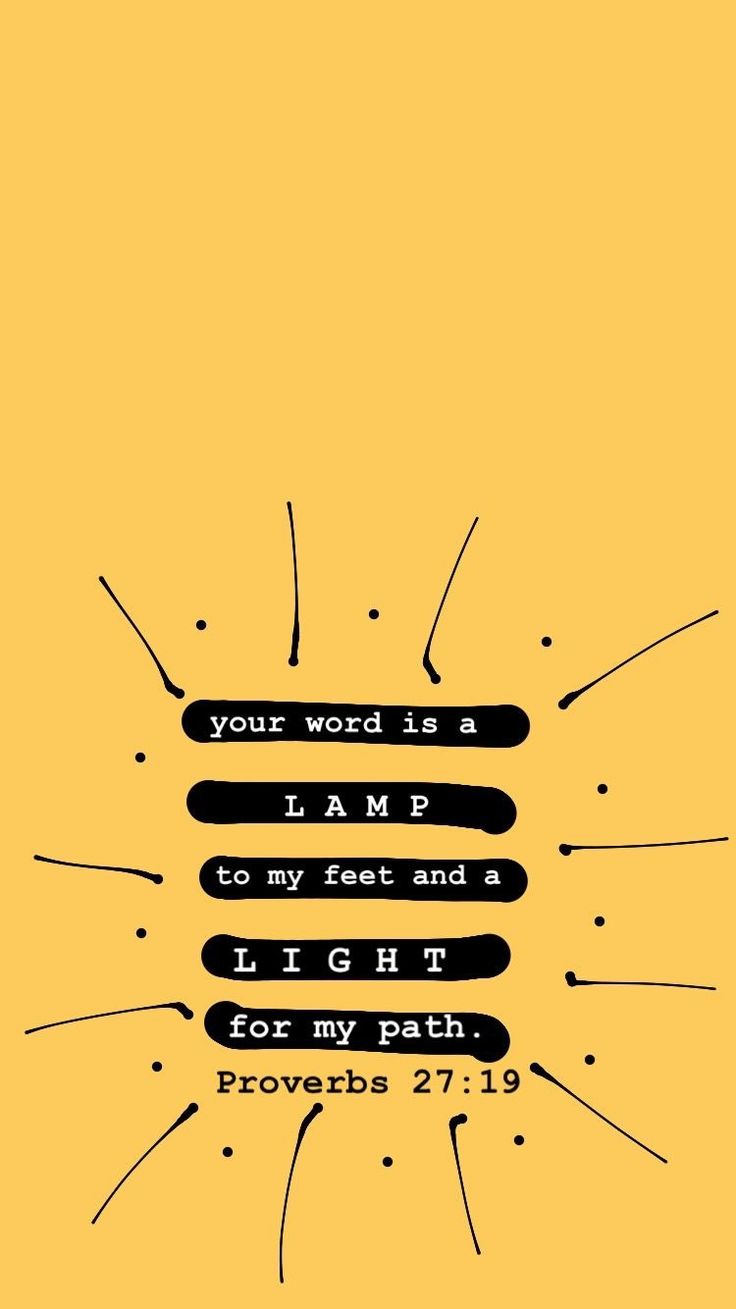 your word is a
L A M P
to my feet and a
L I G H T
for my path.
Proverbs 27:19